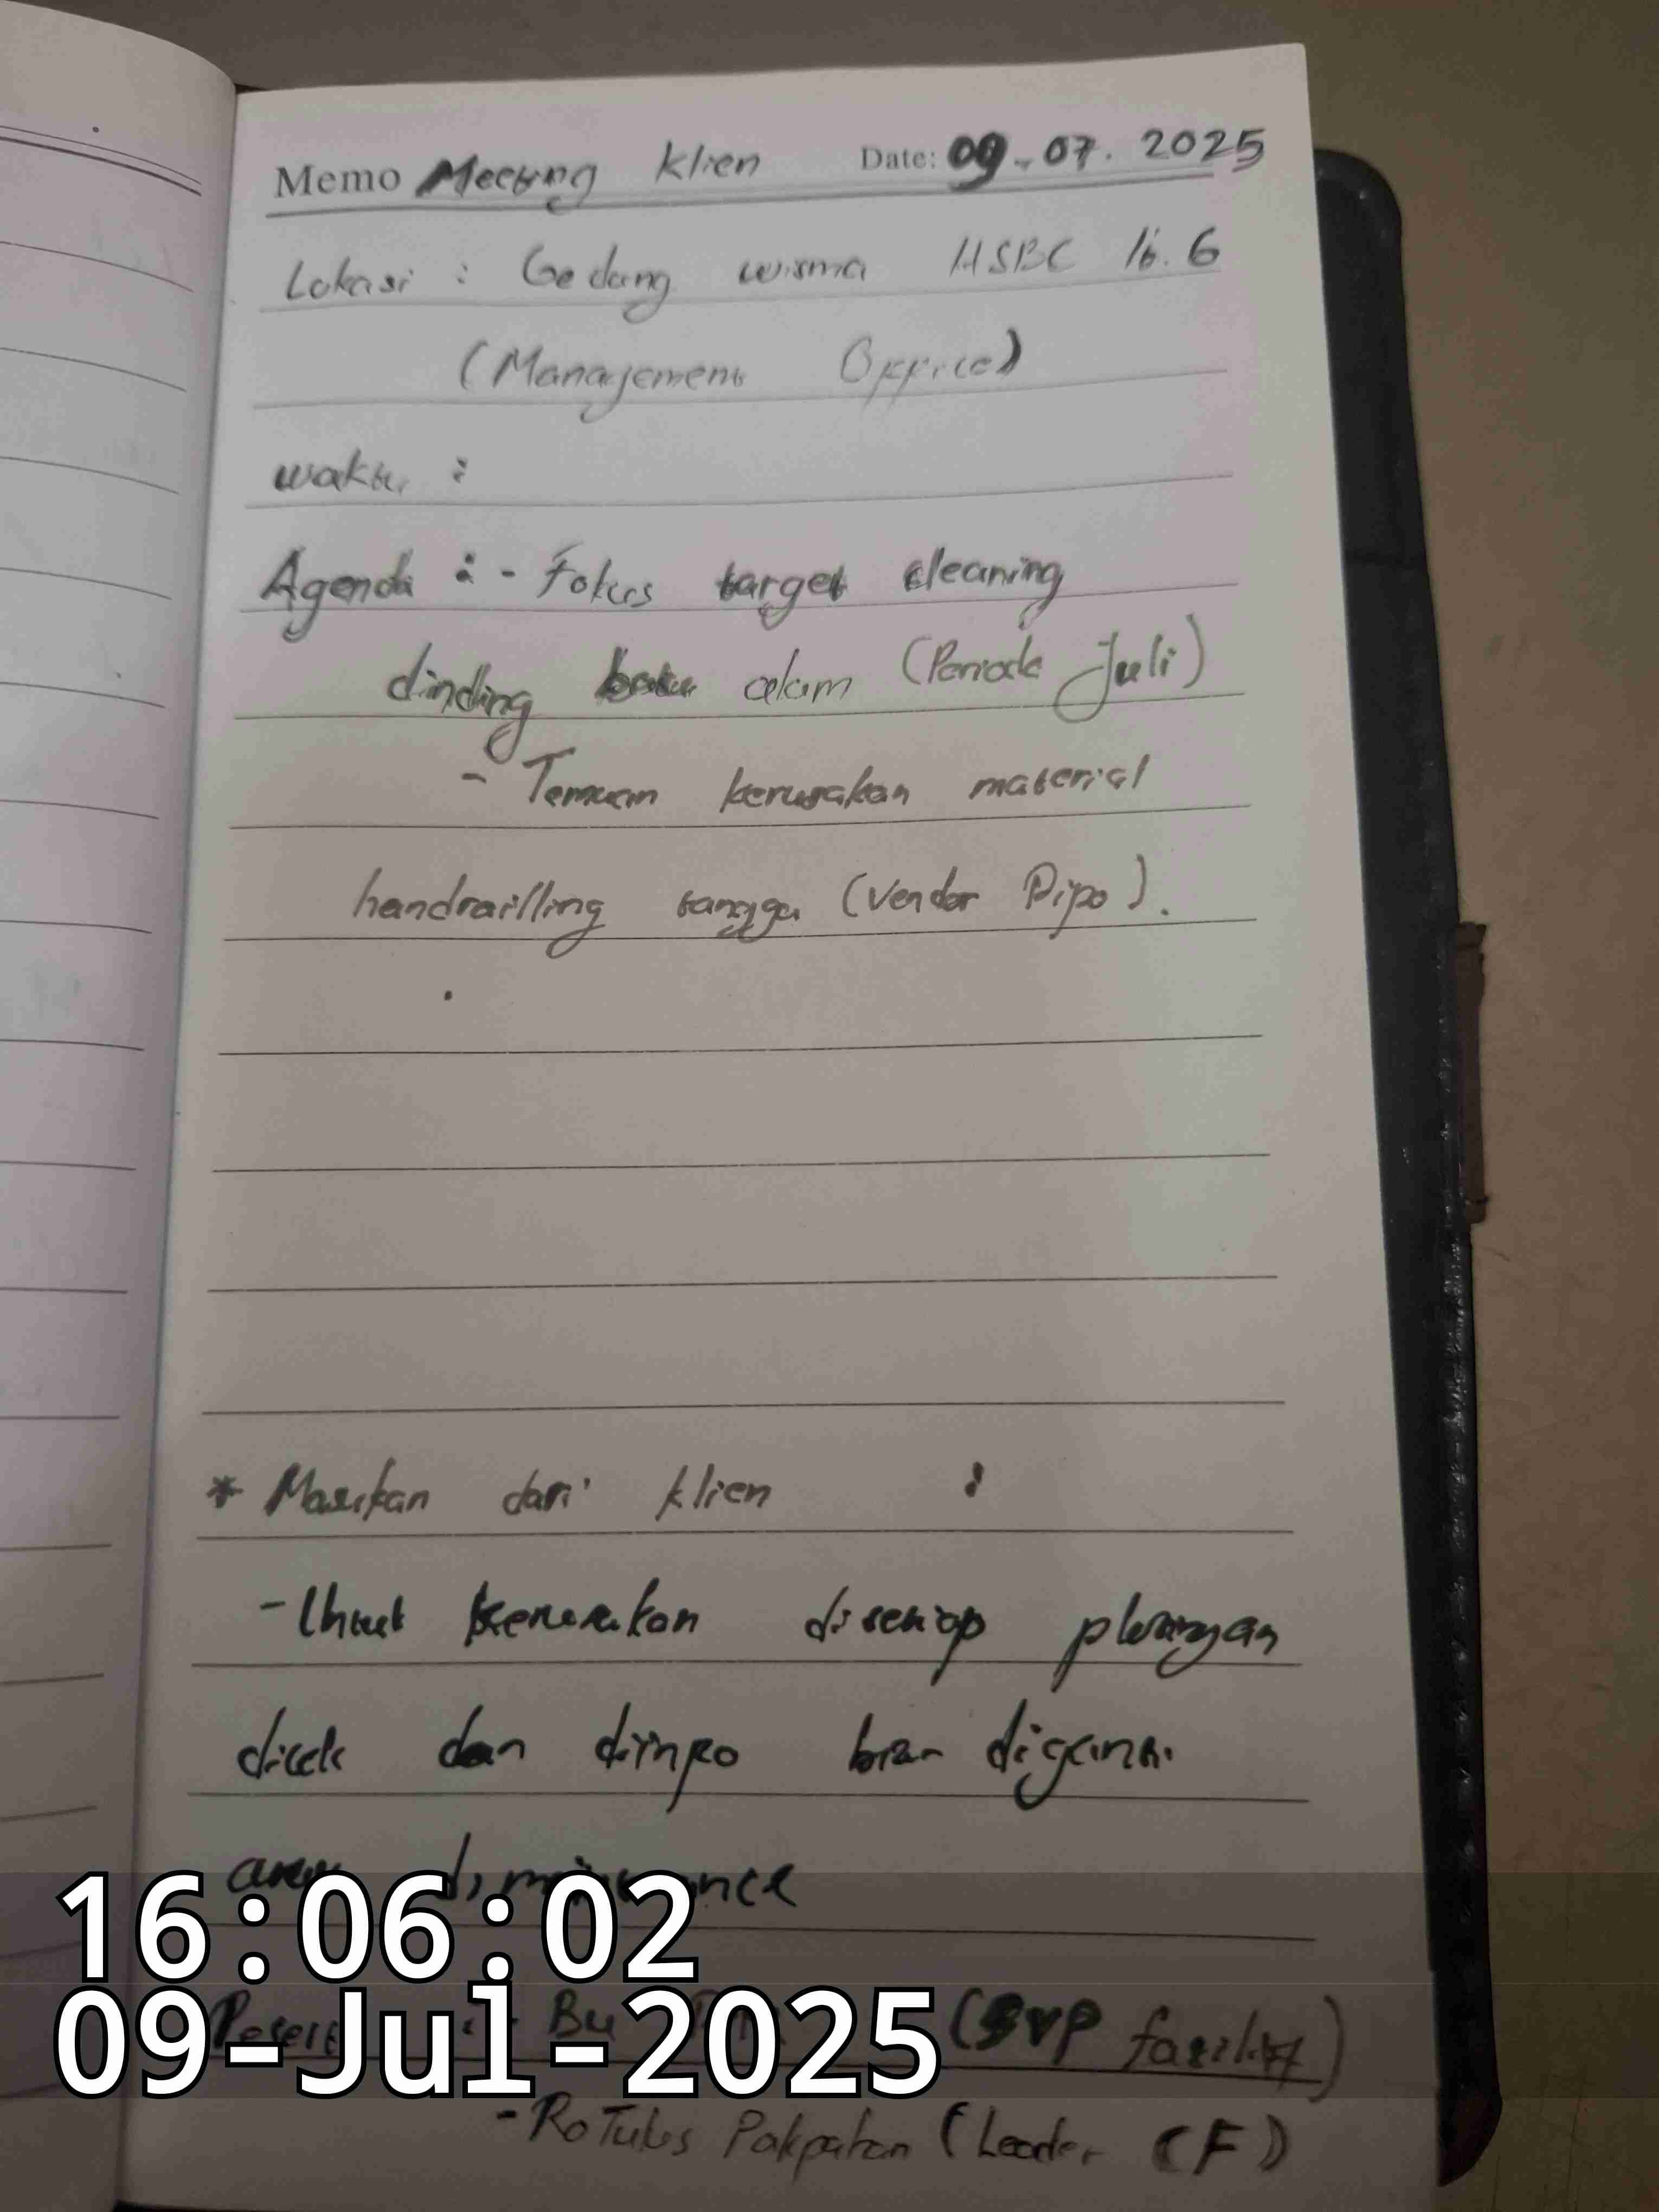 Memo Meeting Klien Date: 09-07.2025
Lokasi : Gedung wisma HSBC lt. 6
(Management Office)
waktu :
Agenda : - Fokus target cleaning
dinding batu alam (Periode Juli)
- Temuan kerusakan material
handrailling tangga (Vendor Dipo).
* Masukan dari klien :
- Untuk kerusakan disetiap
dicek dan diinfo biar diganti
area
16:06:02
09-Jul-2025
Bu (SVP
- RoTulus Pakpahan (Leader CF)